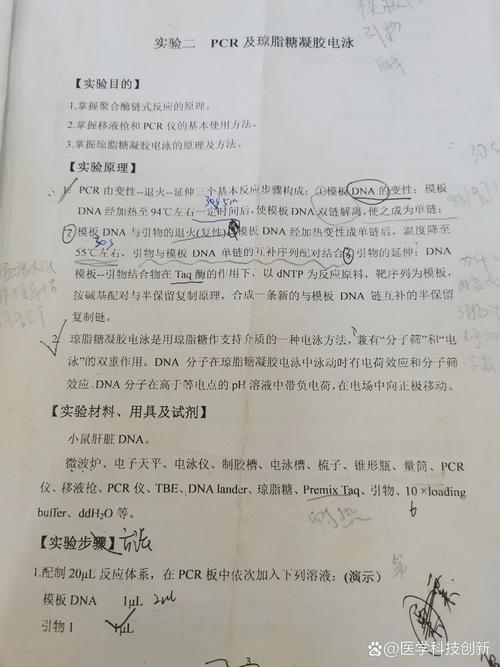 模板
引物
实验二 PCR 及琼脂糖凝胶电泳
【实验目的】
1.掌握聚合酶链式反应的原理。
2.掌握移液枪和 PCR 仪的基本使用方法。
3.掌握琼脂糖凝胶电泳的原理及方法。
【实验原理】
1. PCR 由变性--退火--延伸三个基本反应步骤构成：①模板 DNA 的变性：模板
30s 5m
DNA 经加热至 94℃左右一定时间后，使模板 DNA 双链解离，使之成为单链；
②模板 DNA 与引物的退火(复性)：模板 DNA 经加热变性成单链后，温度降至
30s
55℃左右，引物与模板 DNA 单链的互补序列配对结合③引物的延伸：DNA
模板--引物结合物在 Taq 酶的作用下，以 dNTP 为反应原料，靶序列为模板，
按碱基配对与半保留复制原理，合成一条新的与模板 DNA 链互补的半保留
复制链。
2. 琼脂糖凝胶电泳是用琼脂糖作支持介质的一种电泳方法，兼有“分子筛”和“电
泳”的双重作用。DNA 分子在琼脂糖凝胶电泳中泳动时有电荷效应和分子筛
效应。DNA 分子在高于等电点的 pH 溶液中带负电荷，在电场中向正极移动。
【实验材料、用具及试剂】
小鼠肝脏 DNA。
微波炉、电子天平、电泳仪、制胶槽、电泳槽、梳子、锥形瓶、量筒、PCR
仪、移液抢、PCR 仪、TBE、DNA lander、琼脂糖、Premix Taq、引物、10 ×loading
buffer、ddH2O 等。
6
【实验步骤】方法
1.配制 20μL 反应体系，在 PCR 板中依次加入下列溶液：(演示)
模板 DNA 1μL 2μL
引物 1 1μL
3
百家号/医学科技创新